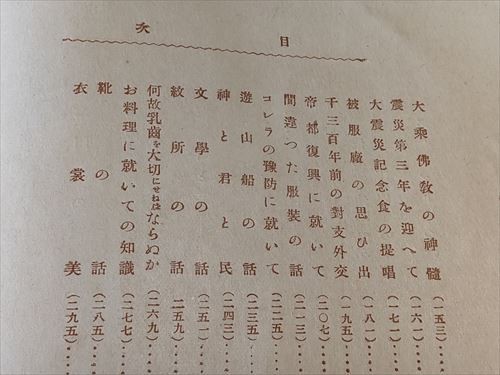 目次
大乘佛敎の神髓(一五三)‥‥
震災第三年を迎へて(一六一)‥‥
大震災記念食の提唱(一七一)‥‥
被服廠の思ひ出(一八一)‥‥
千三百年前の對支外交(一九五)‥‥
帝都復興に就いて(二〇七)‥‥
間違つた服裝の話(二一三)‥‥
コレラの豫防に就いて(二二五)‥‥
遊山船の話(二三五)‥‥
神と君と民(二四三)‥‥
文學の話(二五一)‥‥
紋所の話(二五九)‥‥
何故乳齒を大切にせねばならぬか(二六九)‥‥
お料理に就いての知識(二七七)‥‥
靴の話(二八五)‥‥
衣裳美(二九五)‥‥